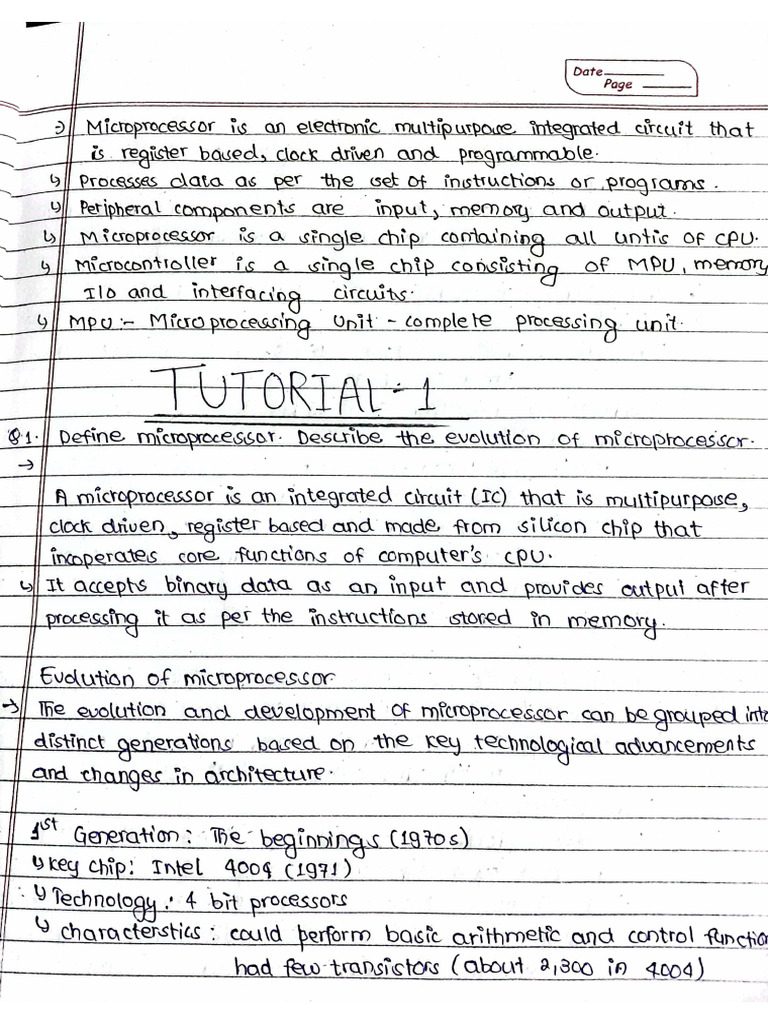 Date
Page
→ Microprocessor is an electronic multipurpose integrated circuit that
is register based, clock driven and programmable.
↳ Processes data as per the set of instructions or programs.
↳ Peripheral components are input, memory and output.
↳ Microprocessor is a single chip containing all untis of CPU.
↳ Microcontroller is a single chip consisting of MPU, memory
I/O and interfacing circuits.
↳ MPU :- Microprocessing Unit - complete processing unit.
TUTORIAL - 1
Q1. Define microprocessor. Describe the evolution of microprocessor.
→
A microprocessor is an integrated circuit (IC) that is multipurpose,
clock driven, register based and made from silicon chip that
incoperates core functions of computer's CPU.
↳ It accepts binary data as an input and provides output after
processing it as per the instructions stored in memory.
Evolution of microprocessor
→ The evolution and development of microprocessor can be grouped into
distinct generations based on the key technological advancements
and changes in architecture.
1st Generation: The beginnings (1970s)
↳ Key chip: Intel 4004 (1971)
↳ Technology: 4 bit processors
↳ characterstics: could perform basic arithmetic and control function
had few transistors (about 2,300 in 4004)